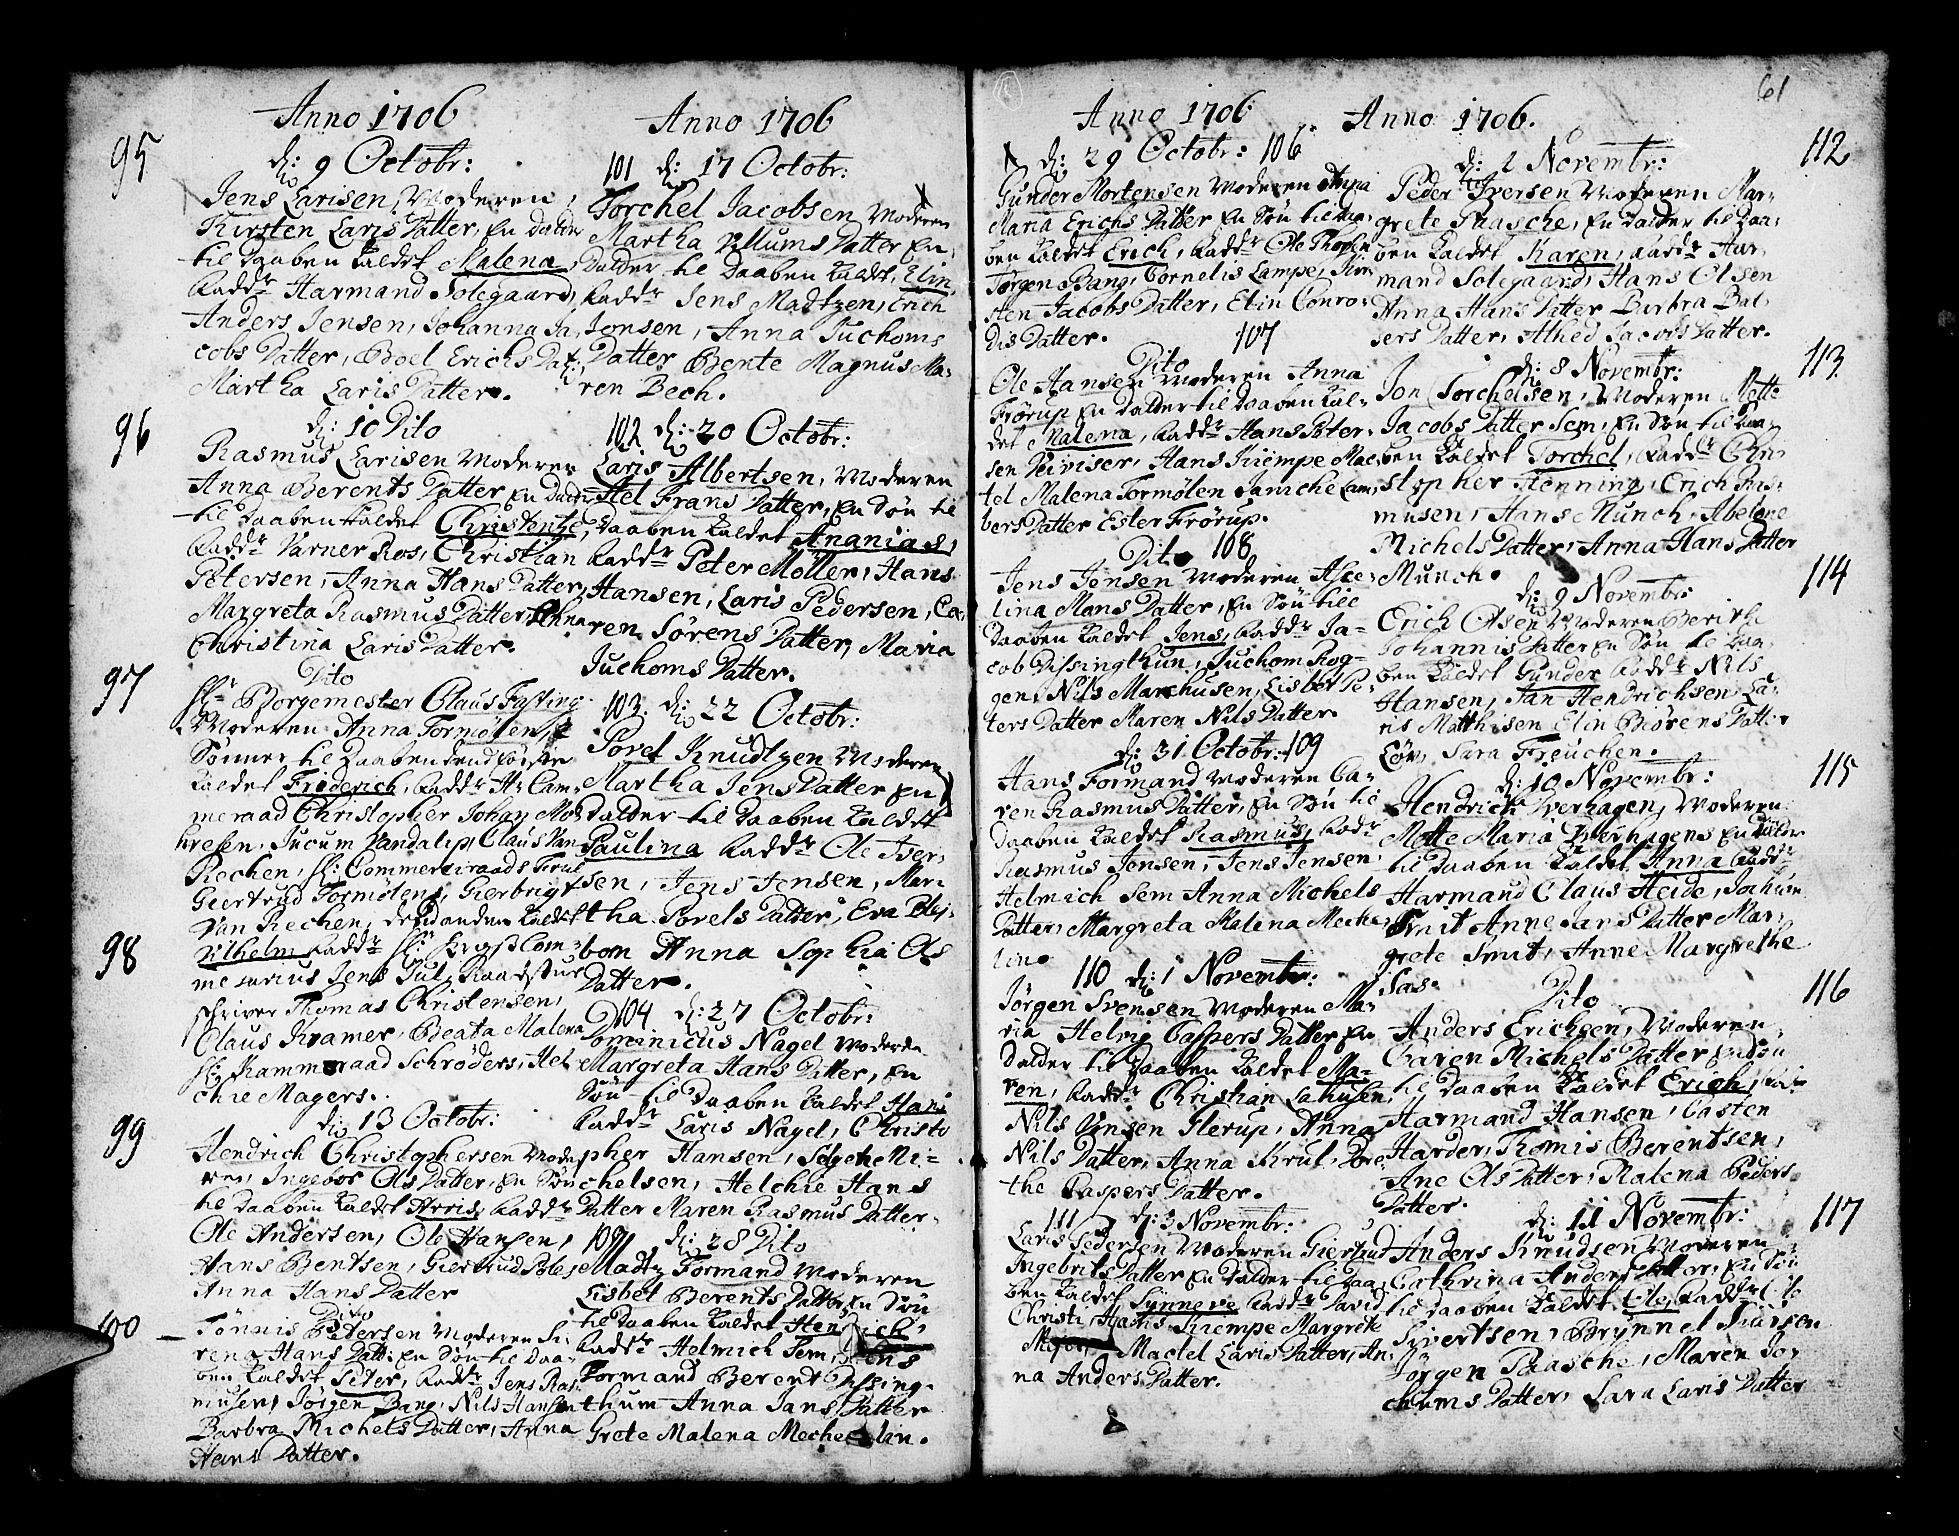 Anno 1706
95
d: 9 Octobr:
Jens Larisen, Moderen
Kirsten Laris Datter, En Datter
til Daaben kaldet Malena,
Faddr Harmand Solegaard,
Anders Jensen, Johanna Ja,
cobs Datter, Boel Erichs Dat,
Martha Laris Datter.
96
d: 10 Dito
Rasmus Larisen Moderen
Anna Berents Datter En Datter
til Daaben kaldet Christentze,
Faddr Varner Ros, Christian
Petersen, Anna Hans Datter,
Margreta Rasmus Datter, Anna
Christina Laris Datter.
97
Dito
Hr Borgemester Claus Fasting
Moderen Anna Formølen, 2
Sønner til Daaben dend første
kaldet Friderich, Faddr Hr Cam,
meraad Christopher Johan Mos
Jucum Vandalip, Claus Van
Rechen, Hr Commerciraads Frue
Giertrud Formølens, Gierbrigt
Van Rechen, dend anden kaldet
98
Vilhelm Faddr Hr Krygs Com,
mesarius Jens Jul, Raadstue
schriver Thomas Christensen,
Claus Kramer, Beata Malena
Hr Kammeraad Schrøders, Hel
chie Magers.
99
d: 13 Octobr:
Hendrich Christophersen Mode
ren, Ingebor Ols Datter, En Søn
til Daaben kaldet Arris, Faddr
Ole Andersen, Ole Hansen,
Hans Bentsen, Giertrud Poles
Anna Hans Datter
100
Dito
Tønnis Petersen Moderen Si,
rena Hans Datt: En Søn til Daa,
ben kaldet Peter, Faddr Jens Ras,
musen, Jørgen Bing, Nils Hansen
Barbra Michels Datter, Anna
Hans Datter.
Anno 1706
101 d: 17 Octobr:
Torchel Jacobsen Moderen
Martha Villums Datter En
Datter til Daaben kaldet, Elin,
Faddr Jens Madtzen, Erich
Jonsen, Anna Juchoms
Datter Bente Magnus Ma,
ren Bech.
102 d: 20 Octobr:
Laris Albertsen, Moderen
Ael Frans Datter, En Søn til
Daaben kaldet Ananias,
Faddr Peter Møller, Hans
Hansen, Laris Pedersen, Ca,
ren Sørens Datter, Maria
Juchoms Datter.
103. d: 22 Octobr:
Povel Knudtzen Moderen
Martha Jens Datter En
Datter til Daaben kaldet
Paulina Faddr Ole Iver,
sen, Jens Jensen, Mari
tha Povels Datter, Eva Blej,
bom Anna Sophia Ols
Datter.
104 d: 27 Octobr:
Dominicus Nagel Moderen
Margreta Hans Datter, En
Søn til Daaben kaldet Hans
Faddr Laris Nagel, Christo
pher Hansen, Sølgche Mi=
chelsen, Helchie Hans
Datter Maren Rasmus Datter.
105 d: 28 Dito
Madtz Formand Moderen
Lisbet Berents Datter, En Søn
til Daaben kaldet Hendrich,
Faddr Helmich Sem, Jens
Formand Berent Dissing,
thum Anna Jans Datter
Grete Malena Mechelin.
Anno 1706
d: 29 Octobr: 106
Gunder Mortensen Moderen Anna
Maria Erichs Datter En Søn til Daa,
ben kaldet Erich, Faddr Ole
Jørgen Bang, Cornelis Lampe, Kir,
sten Jacobs Datter, Elin Conro,
dis Datter.
107
Dito
Ole Hansen Moderen Anna
Frørup En Datter til Daaben kal,
det Malena, Faddr Hans Peter,
sen Viviser, Hans Kiempe Mac,
tel Malena Formølen Janiche Lam,
bers Datter Ester Frørup.
Dito 108
Jens Jensen Moderen Asce,
lina Mans Datter, En Søn till
Daaben kaldet Jens, Faddr Ja=
cob Dissingthun, Juchom Rog=
gen, Nils Marchusen, Lisbet Pe,
ters Datter Maren Nils Datter.
d: 31 Octobr: 109
Hans Formand Moderen Ca,
ren Rasmus Datter, En Søn til
Daaben kaldet Rasmus, Faddr
Rasmus Jonsen, Jens Jensen
Helmich Sem Anna Michels
Datter, Margreta Malena Meche,
lin.
110 d: 1 Novembr:
Jørgen Svensen Moderen Ma,
ria Helvig Caspers Datter En
Datter til Daaben kaldet Ma=
ren, Faddr Christian Jahnsen,
Nils Jensen Flerup, Anna
Nils Datter, Anna Krul, Dore
the Caspers Datter.
111 d: 3 Novembr:
Laris Pedersen Moderen Giertrud
Ingebrits Datter En Datter til Daa,
ben kaldet Synneve Faddr David
Christi Hans Kiempe Margrete
Meyer, Mactel Laris Datter, An,
na Anders Datter.
61
Anno 1706.
112
d: 2 Novembr:
Peder Iversen Moderen Mar,
grete Paasche, En Datter til Daa,
ben kaldet Karen, Faddr Har,
mand Solegaard, Hans Olsen
Anna Hans Datter Barbra Bal,
sers Datter, Alhed Jacobs Datter.
113.
d: 8 Novembr:
Jon Torchelsen, Moderen Mette
Jacobs Datter Sem, En Søn til Daa,
ben kaldet Torchel, Faddr Chri,
stopher Henning, Erich Ras,
musen, Hans Munch, Abelone
Michels Datter, Anna Hans Datter
Munch.
114
d: 9 Novembr:
Erich Olsen Moderen Berithe
Johannis Datter En Søn til Daa,
ben kaldet Gunder Faddr Nils
Hansen, Jan Hendrichsen, La,
ris Matthisen Elin Biørens Datter
Løv, Sara Freuchen.
115
d: 10 Novembr:
Hendrich Iverhagen, Moderen
Mette Maria Iverhagens En Datter
til Daaben kaldet Anna Faddr
Harmand Claus Heide, Jochum
Smit Anne Jans Datter Mar,
grete Smit, Anne Margrethe
Sas.
116
Dito
Anders Erichsen, Moderen
Caren Michels Datter En Søn
til Daaben kaldet Erich, Faddr
Harmand Hansen, Casten
Harder, Tomis Berentsen,
Ane Ols Datter, Malena Peders
Datter.
117
d: 11 Novembr:
Anders Knudsen Moderen
Cathrina Anders Datter, En Søn
til Daaben kaldet Ole, Faddr Ole
Sivertsen, Brynnel Siursen
Jørgen Paasche, Maren Jo,
chums Datter, Sara Laris Datter